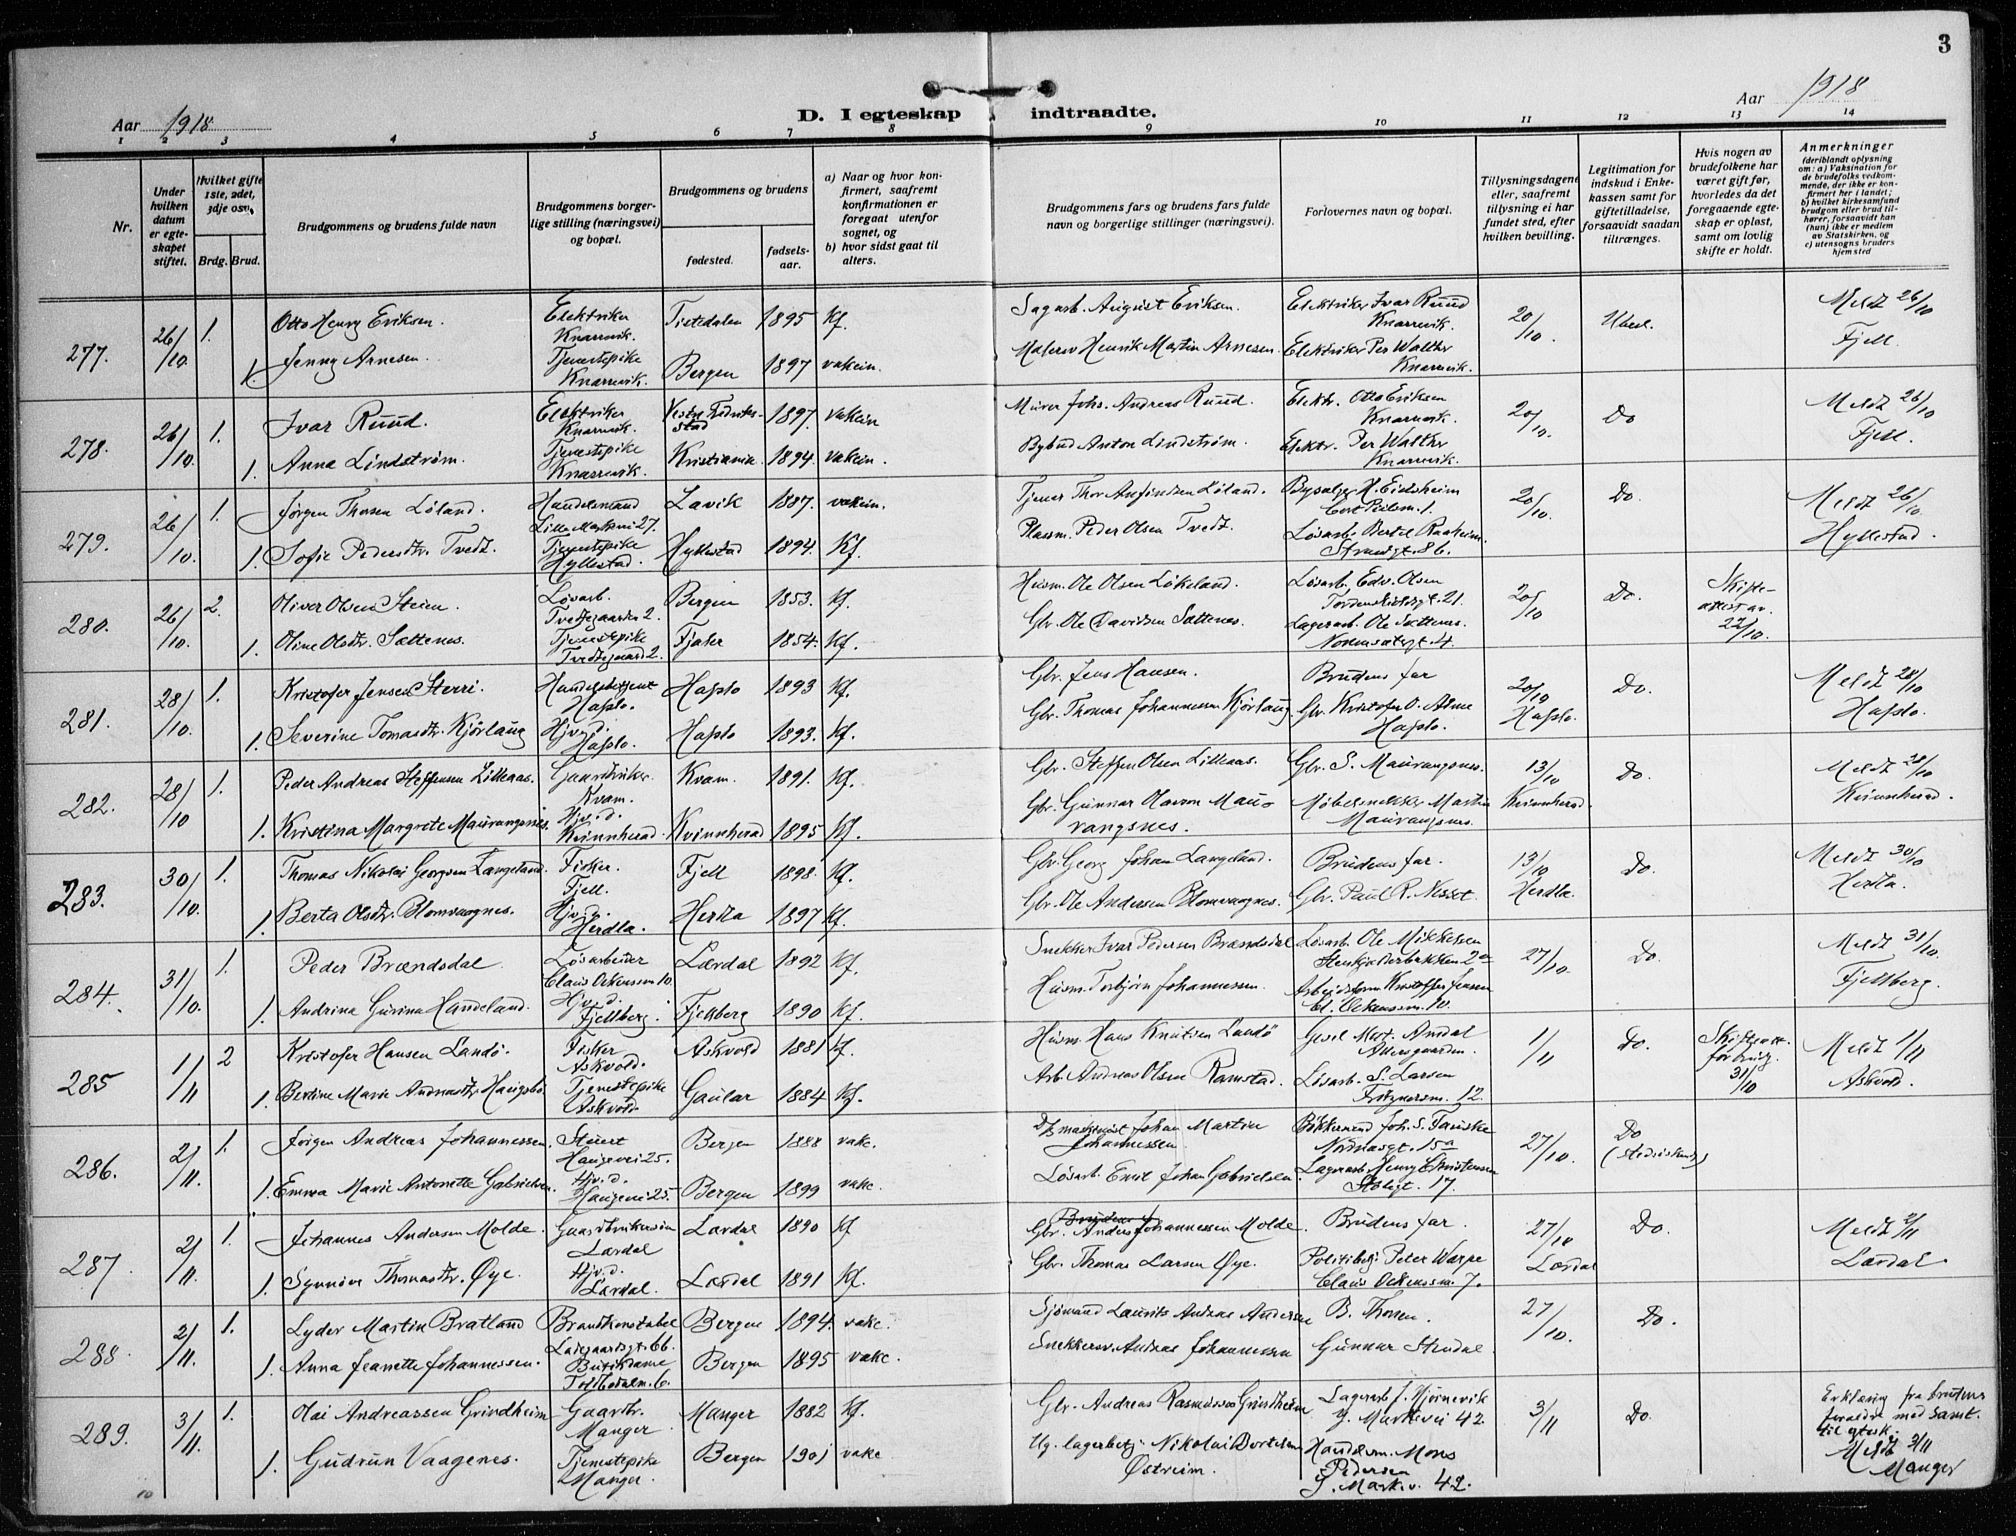 3
Aar 1918
D. I egteskap indtraadte.
Aar 1918
1 2 3 4 5 6 7 8 9 10 11 12 13 14
Nr.
Under hvilken datum er egteskapet stiftet.
Hvilket gifte 1ste, 2det, 3dje osv.
Brdg. Brud.
Brudgommens og brudens fulde navn
Brudgommens borgerlige stilling (næringsvei) og bopæl.
Brudgommens og brudens
fødested.
fødselsaar.
a) Naar og hvor konfirmert, saafremt konfirmationen er foregaat utenfor sognet, og
b) hvor sidst gaat til alters.
Brudgommens fars og brudens fars fulde navn og borgerlige stillinger (næringsvei).
Forlovernes navn og bopæl.
Tillysningsdagene eller, saafremt tillysning ei har fundet sted, efter hvilken bevilling.
Legitimation for indskud i Enkekassen samt for giftetilladelse, forsaavidt saadan tiltrænges.
Hvis nogen av brudefolkene har været gift før, hvorledes da det foregaaende egteskap er opløst, samt om lovlig skifte er holdt.
Anmerkninger
(deriblandt oplysning om: a) Vaksination for de brudefolks vedkommende, der ikke er konfirmert her i landet; b) hvilket kirkesamfund brudgom eller brud tilhører, forsaavidt han (hun) ikke er medlem av Statskirken, og c) utensogns bruders hjemsted
277. 26/10 1. Otto Henry Eriksen. Elektriker Knarrevik. Tistedalen 1895 Kf. Sagarb. August Eriksen. Elektriker Ivar Ruud Knarrevik. 20/10 Ubesl. Meldt 26/10 Fjell.
1. Jenny Arnesen. Tjenestepike Knarrevik. Bergen 1897 vaksin. Malersv Henrik Martin Arnesen Elektriker Per Walther Knarrevik.
278. 26/10. 1. Ivar Ruud. Elektriker Knarrevik. Vestre Fredrikstad 1897. vaksin Murer Johs. Andreas Ruud. Elektr. Otto Eriksen Knarrevik 20/10. Do Meldt 26/10 Fjell.
1. Anna Lindström. Tjenestepike Knarrevik. Kristiania 1894. vaksin. Bybud Anton Lindström. Elektr. Per Walther Knarrevik.
279. 26/10. 1. Jørgen Thorsen Löland. Handelsmand Lille Markevei 27. Lavik 1887. vaksin. Tjener Thor Anfindsen Löland. Bysælger H. Eidsheim 20/10. Do. Meldt 26/10. Hyllestad.
1. Sofie Pedersdtr. Tvedt. Tjenestepike Hyllestad. Hyllestad 1894. Kf. Plassm. Peder Olsen Tvedt. Løsarb. Bertel Raaheim. Strandgt. 86.
280. 26/10. 2. Oliver Olsen Steien. Løsarb. Tvedtegaarden 2. Bergen 1853. Kf. Husm. Ole Olsen Lökeland. Løsarb. Edv. Olsen Tordenskioldsgt. 21. 20/10 Do. Skifteattest av. 22/10.
1. Oline Olsdtr. Sættenes. Tjenestepike Tvedtegaard 2. Fjaler 1854. Kf. Gbr. Ole Davidsen Sættenes. Lagerarb. Ole Sættenes.
281. 28/10. 1. Kristofer Jensen Sterri. Handelsbetjent Hafslo. Hafslo 1893 Kf. Gbr. Jens Hansen. Brudens far 20/10 Hafslo. Do. Meldt 28/10 Hafslo.
1. Severine Tomasdtr. Kjörlaug Hjv.d. Hafslo. Hafslo 1893. Kf. Gbr. Thomas Johannessen Kjörlaug Gbr. Kristofer O. Alme Hafslo.
282. 28/10 1. Peder Andreas Steffensen Lilleaas. Gaardbruker Kvam. Kvam. 1891. Kf. Gbr. Steffen Olsen Lilleaas. Gbr. S. Maurangsnes. 13/10 Kvinnherad Do. Meldt 28/10 Kvinnherad.
1. Kristina Margrete Maurangsnes. Hjv.d. Kvinnherad. Kvinnherad 1895 Kf. Gbr. Gunnar Olavson Maurangsnes. Møbelsnekker Martin Maurangsnes.
283. 30/10. 1. Thomas Nikolai Georgsen Langeland. Fisker. Fjell. Fjell 1898. Kf. Gbr. Georg Johan Langeland. Brudens far. 13/10 Herdla. Do. Meldt 30/10 Herdla.
1. Berta Olsdtr. Blomvaagnes. Hjv.d. Herdla. Herdla 1897 Kf. Gbr. Ole Andersen Blomvaagnes. Gbr. Paul R. Nesset.
284. 31/10. 1. Peder Brændsdal. Løsarbeider Claus Ockensm 10. Lærdal 1892 Kf. Snekker Ivar Pedersen Brændsdal Løsarb. Ole Mikkelsen 27/10. Do. Meldt 31/10. Fjellberg.
1. Andrina Gurina Handeland. Hjv.d. Fjellberg. Fjellberg 1890 Kf. Husm. Torbjörn Johannessen. Arbeidsform Kristoffer Jensen Cl. Ockenssm. 10.
285 1/11 2 Kristofer Hansen Landö. Fisker Askvold. Askvold 1881 Kf. Husm. Hans Knutsen Landö Gesel Mart. Andal 1/11 Do. 31/10 Meldt 1/11 Askvold.
1. Bertine Marie Andreasdtr. Haugsbö Tjenestepike Askvold. Gaular 1884 Kf. Arb. Andreas Olsen Ramstad. Løsarb. S. Larsen Fritznersm. 12.
286. 2/11. 1. Jørgen Andreas Johannessen. Stuert Haugevei 25. Bergen 1888 vakc. Johan Martin Johannessen Bökkersvend Joh. S. Fanske Nordnesgt. 15a 27/10. Do
1. Emma Marie Antonette Gabrielsen. Hjv.d. Haugevei 25. Bergen 1899 vakc. Løsarb. Emil Johan Gabrielsen. Lagerarb. Henry Christensen 17.
287. 2/11. 1. Johannes Andersen Molde. Gaardbrukersøn Lærdal Lærdal 1890 Kf Gbr. Anders Johannessen Molde. Brudens far. 27/10 Lærdal Do. Meldt 2/11 Lærdal.
1. Synnöve Thomasdtr. Øye. Hjv.d. Lærdal. Lærdal 1891 Kf. Gbr. Thomas Larsen Øye. Politibetj. Peter Warpe Claus Ockenssm. 7.
288. 2/11. 1. Lyder Martin Bratland Brandkonstabel Ladegaardsgt. 66. Bergen 1894. vakc. Sjömand Laurits Andreas Andersen B. Thorsen. 27/10. Do.
1. Anna Jeanette Johannessen. Butikdame Toldbodalm. 6. Bergen 1895 vakc. Snekkersv. Andreas Johannessen Gunnar Stendal
289. 3/11. 1. Olai Andreassen Grindheim Gaardbr. Manger Manger 1882 Kf. Gbr. Andreas Rasmussen Grindheim Lagerarb J. Mjörnevik Y. Markevei 42. 3/11 Do. Erklæring fra brudens forældre med samt. til egtesk. Meldt 3/11 Manger
1. Gudrun Vaagenes. Tjenestepike Manger. Bergen 1901 vakc Ug. lagerbetj. Nikolai Bertelsen Østreim. Handelsm. Mons Pedersen Y. Markev. 42.